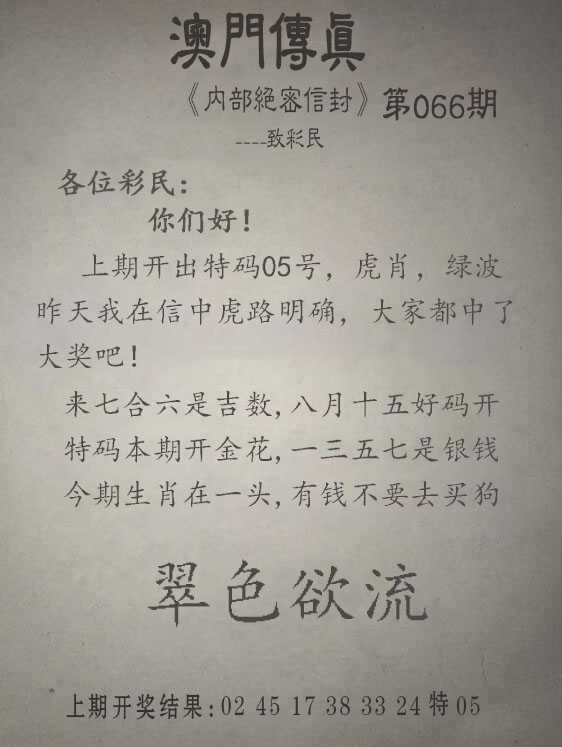 澳門傳真
《内部絕密信封》第066期
----致彩民
各位彩民：
你们好！
上期开出特码05号，虎肖，绿波
昨天我在信中虎路明确，大家都中了
大奖吧！
来七合六是吉数，八月十五好码开
特码本期开金花，一三五七是银钱
今期生肖在一头，有钱不要去买狗
翠色欲流
上期开奖结果：02 45 17 38 33 24 特 05